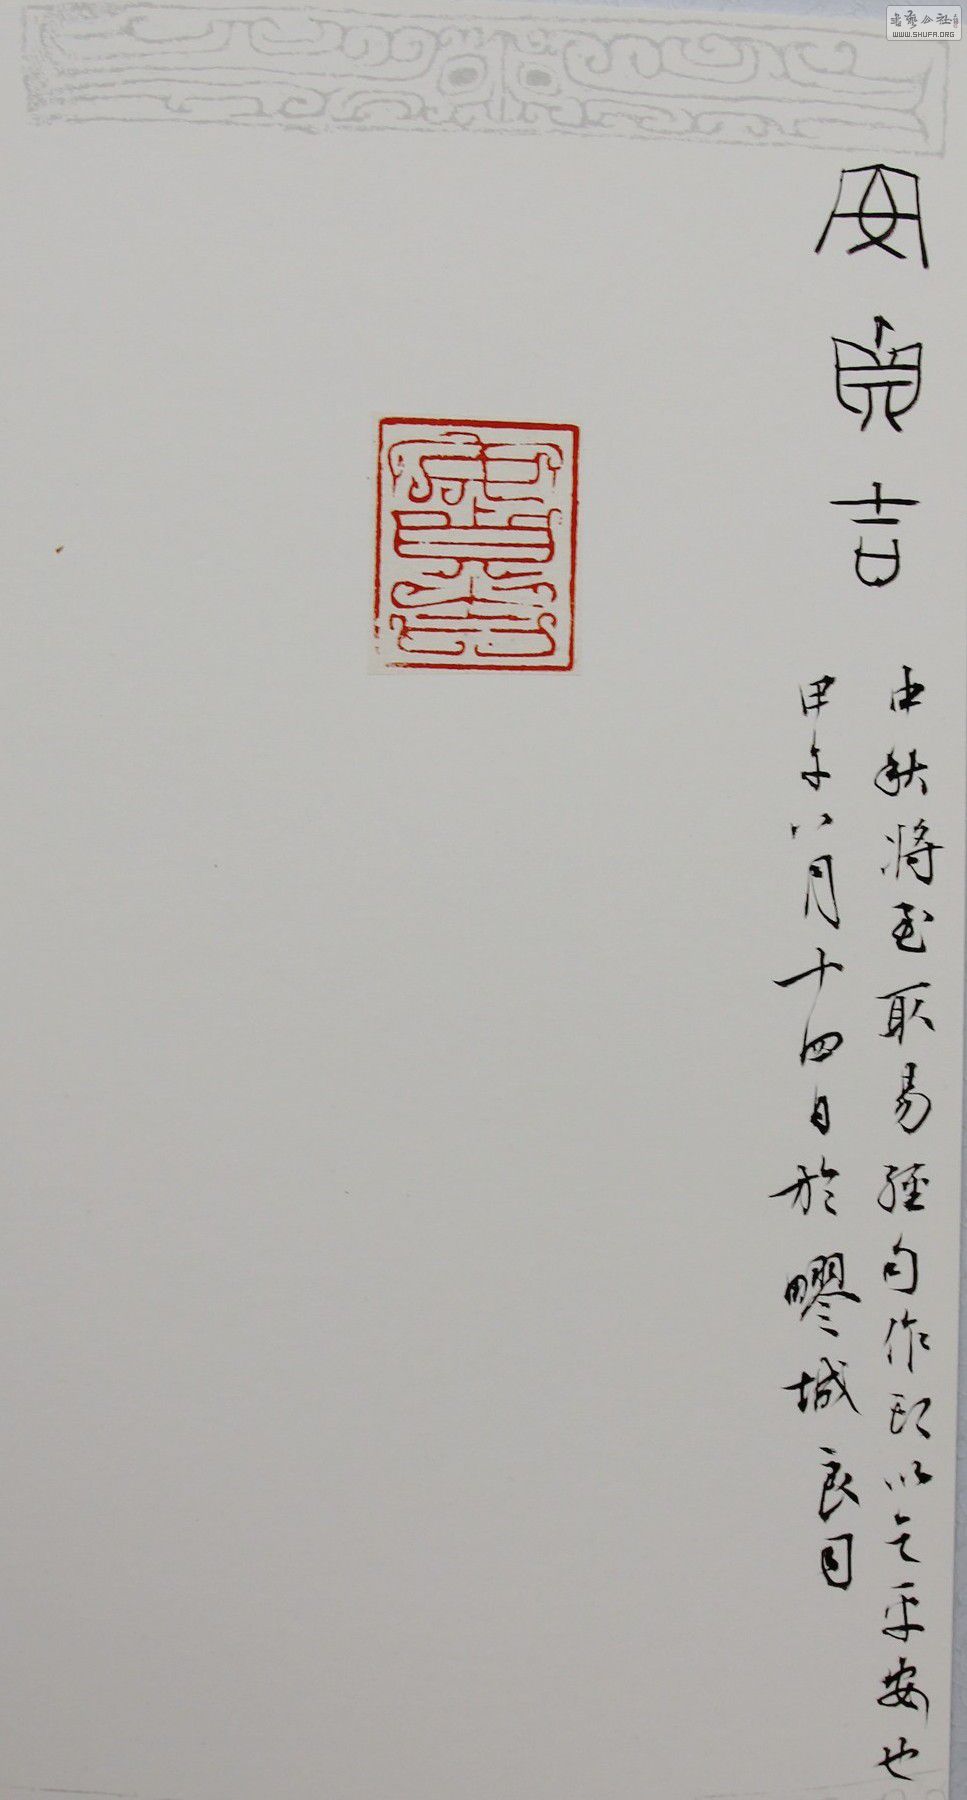 安貞吉
中秋将至取易經句作印以乞平安也
甲午八月十四日於疁城良月
安貞吉
书艺公社
WWW.SHUFA.ORG